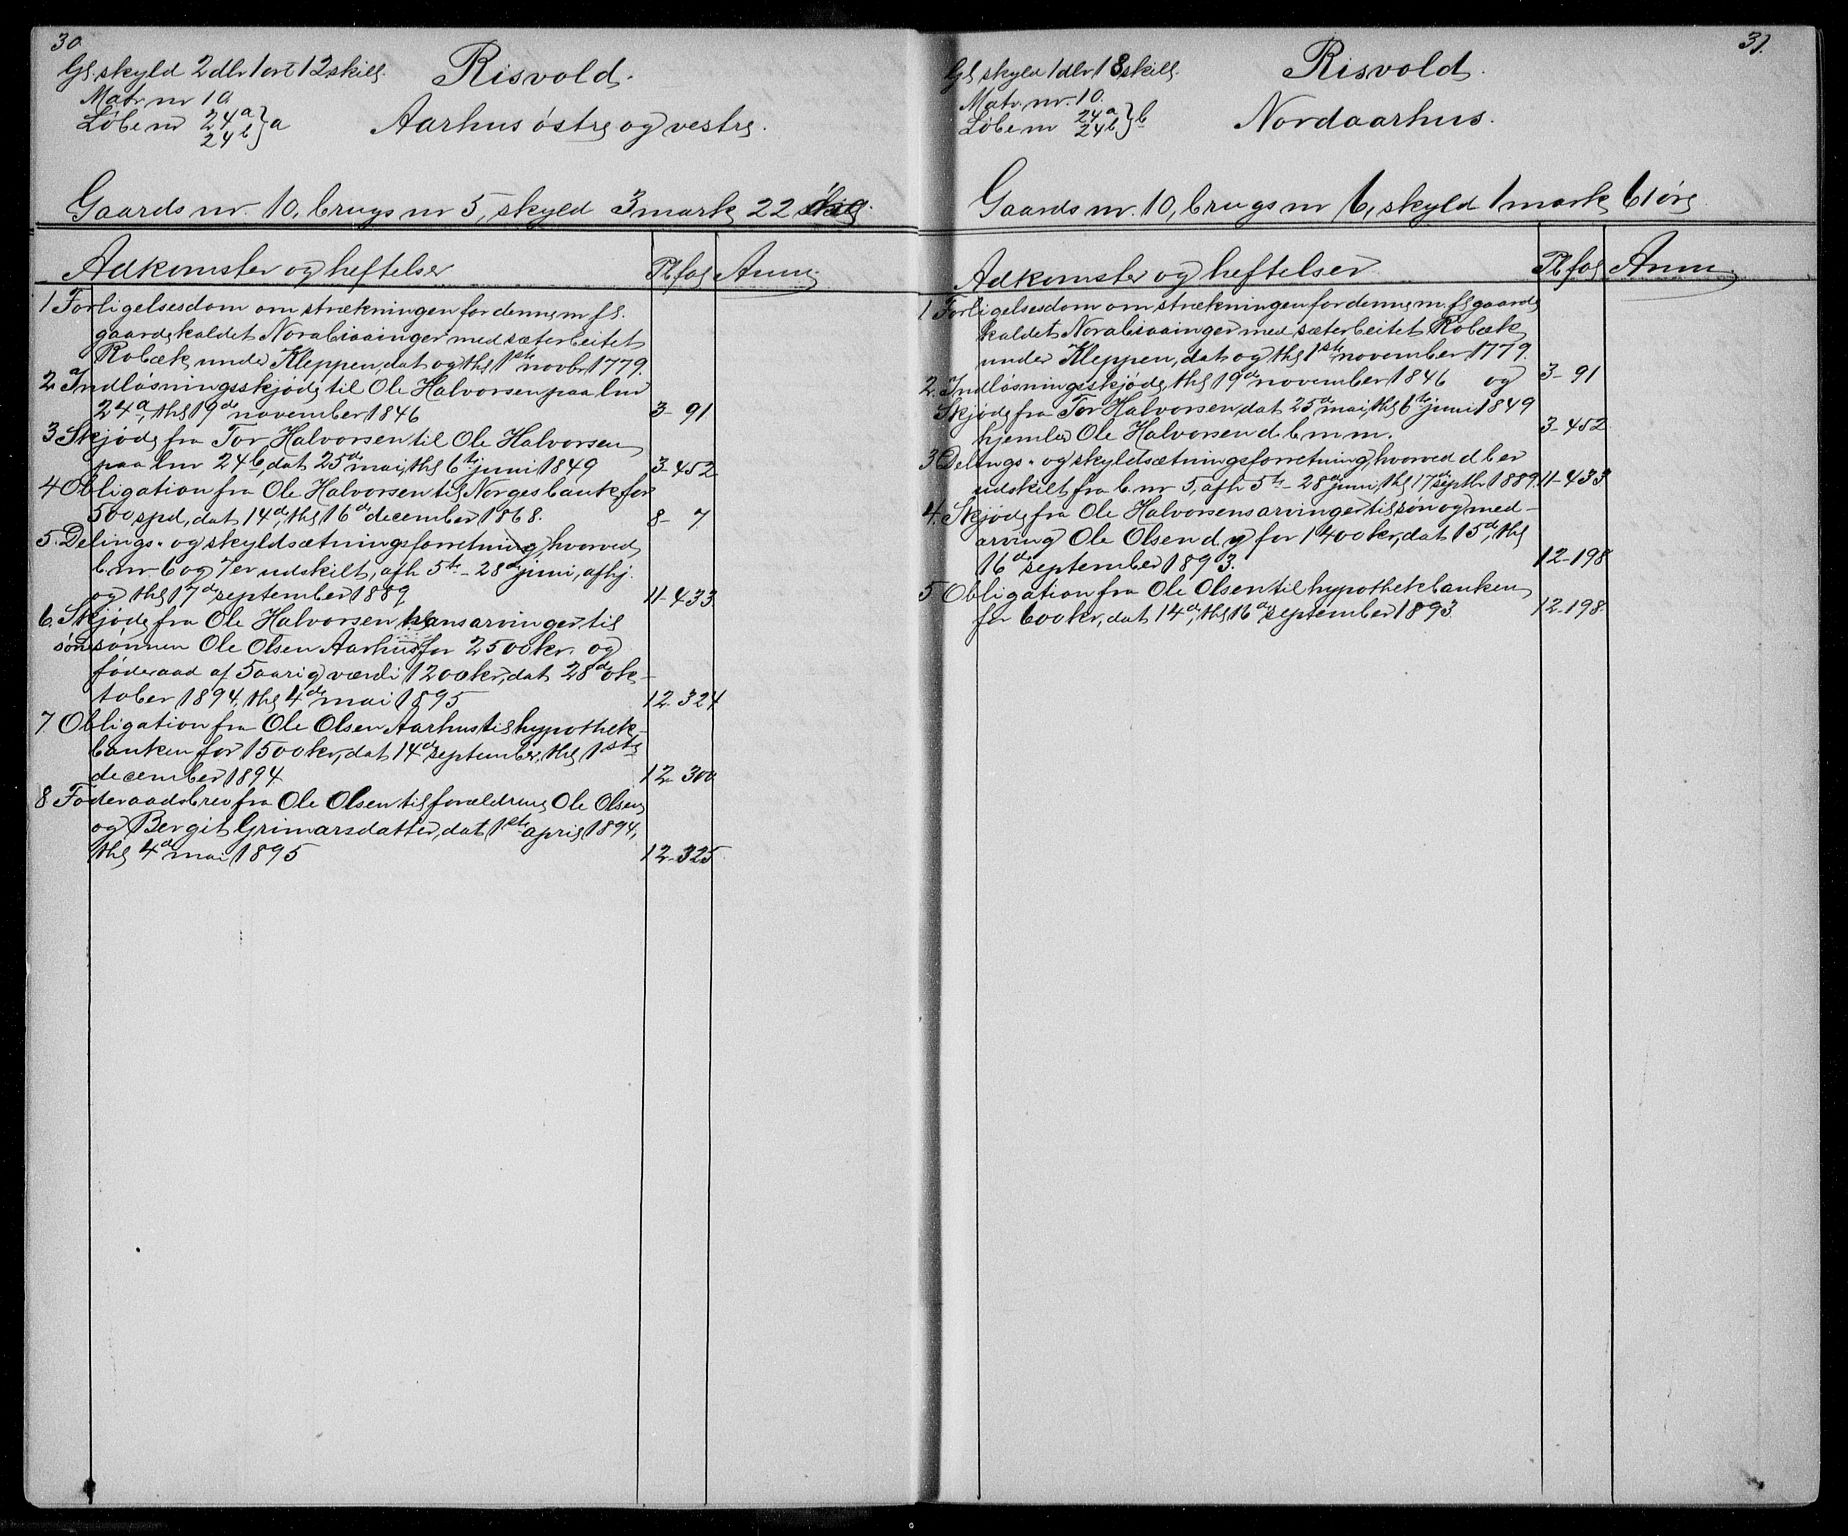 30
Gl. skyld 2 dlr 1 ort 12 skill.
Risvold.
Matr nr 10
Löbenr 24a } a
24b
Aarhus östre og vestre.
Gaards nr. 10, brugs nr 5, skyld 3 mark 22 öre.
Adkomster og heftelser
Pl. fol
Anm.
1 Forligelsesdom om strækningen for denne m. fl.
gaarde kaldet Norabisaainger med sæterbeitet
Robæk under Kleppen, dat og thl 1ste novbr 1779.
2 Indløsningsskjøde til Ole Halvorsen paa lnr
24a, thl 19de november 1846
3- 91
3 Skjøde fra Tor Halvorsen til Ole Halvorsen
paa lnr 24b, dat 25de mai, thl 6te juni 1849
3- 452
4 Obligation fra Ole Halvorsen til Norges bank for
500 spd, dat 14de, thl 16de december 1868.
8- 7
5. Delings- og skyldsætningsforretning, hvorved
b.nr. 6 og 7 er udskilt, afh 5te- 28de juni, afhj.
og thl 17de september 1889
11- 433
6. Skjøde fra Ole Halvorsen hans arvinger til
sønnesønnen Ole Olsen Aarhus for 2500 kr. og
føderaad af 5 aarig værdi 1200 kr, dat 28de ok-
tober 1894, thl 4de mai 1895
12- 324
7 Obligation fra Ole Olsen Aarhus til hypothek-
banken for 1500 kr, dat 14de september, thl 1ste
december 1894
12- 300
8 Føderaadsbrev fra Ole Olsen til forældrene Ole Olsen
og Bergit Grimarsdatter, dat 1ste april 1894,
thl 4de mai 1895
12- 325
31.
Gl. skyld 1 dlr 18 skill.
Risvold.
Matr. nr. 10.
Löbenr 24a } b
24b
Nordaarhus.
Gaards nr. 10, brugs nr 6, skyld 1 mark 61 öre
Adkomster og heftelser
Pl fol
Anm.
1 Forligelsesdom om strækningen for denne m. fl gaarde
kaldet Norabisaainger med sæterbeitet Robæk
under Kleppen, dat og thl 1ste november 1779.
2. Indløsningsskjøde thl 19de november 1846 og
3- 91
Skjøde fra Tor Halvorsen, dat 25de mai, thl 6te juni 1849
hjemler Ole Halvorsen d b m m.
3- 452
3 Delings- og skyldsætningsforretning, hvorved d b er
udskilt fra b. nr 5, afh 5te- 28de juni, thl 17de septbr 1889
11- 433
4. Skjøde fra Ole Halvorsens arvinger til søn og med-
arving Ole Olsen d. y for 1400 kr, dat 15de, thl
16de september 1893.
12- 198
5 Obligation fra Ole Olsen til hypothekbanken
for 600 kr, dat 14de, thl 16de september 1893
12- 198